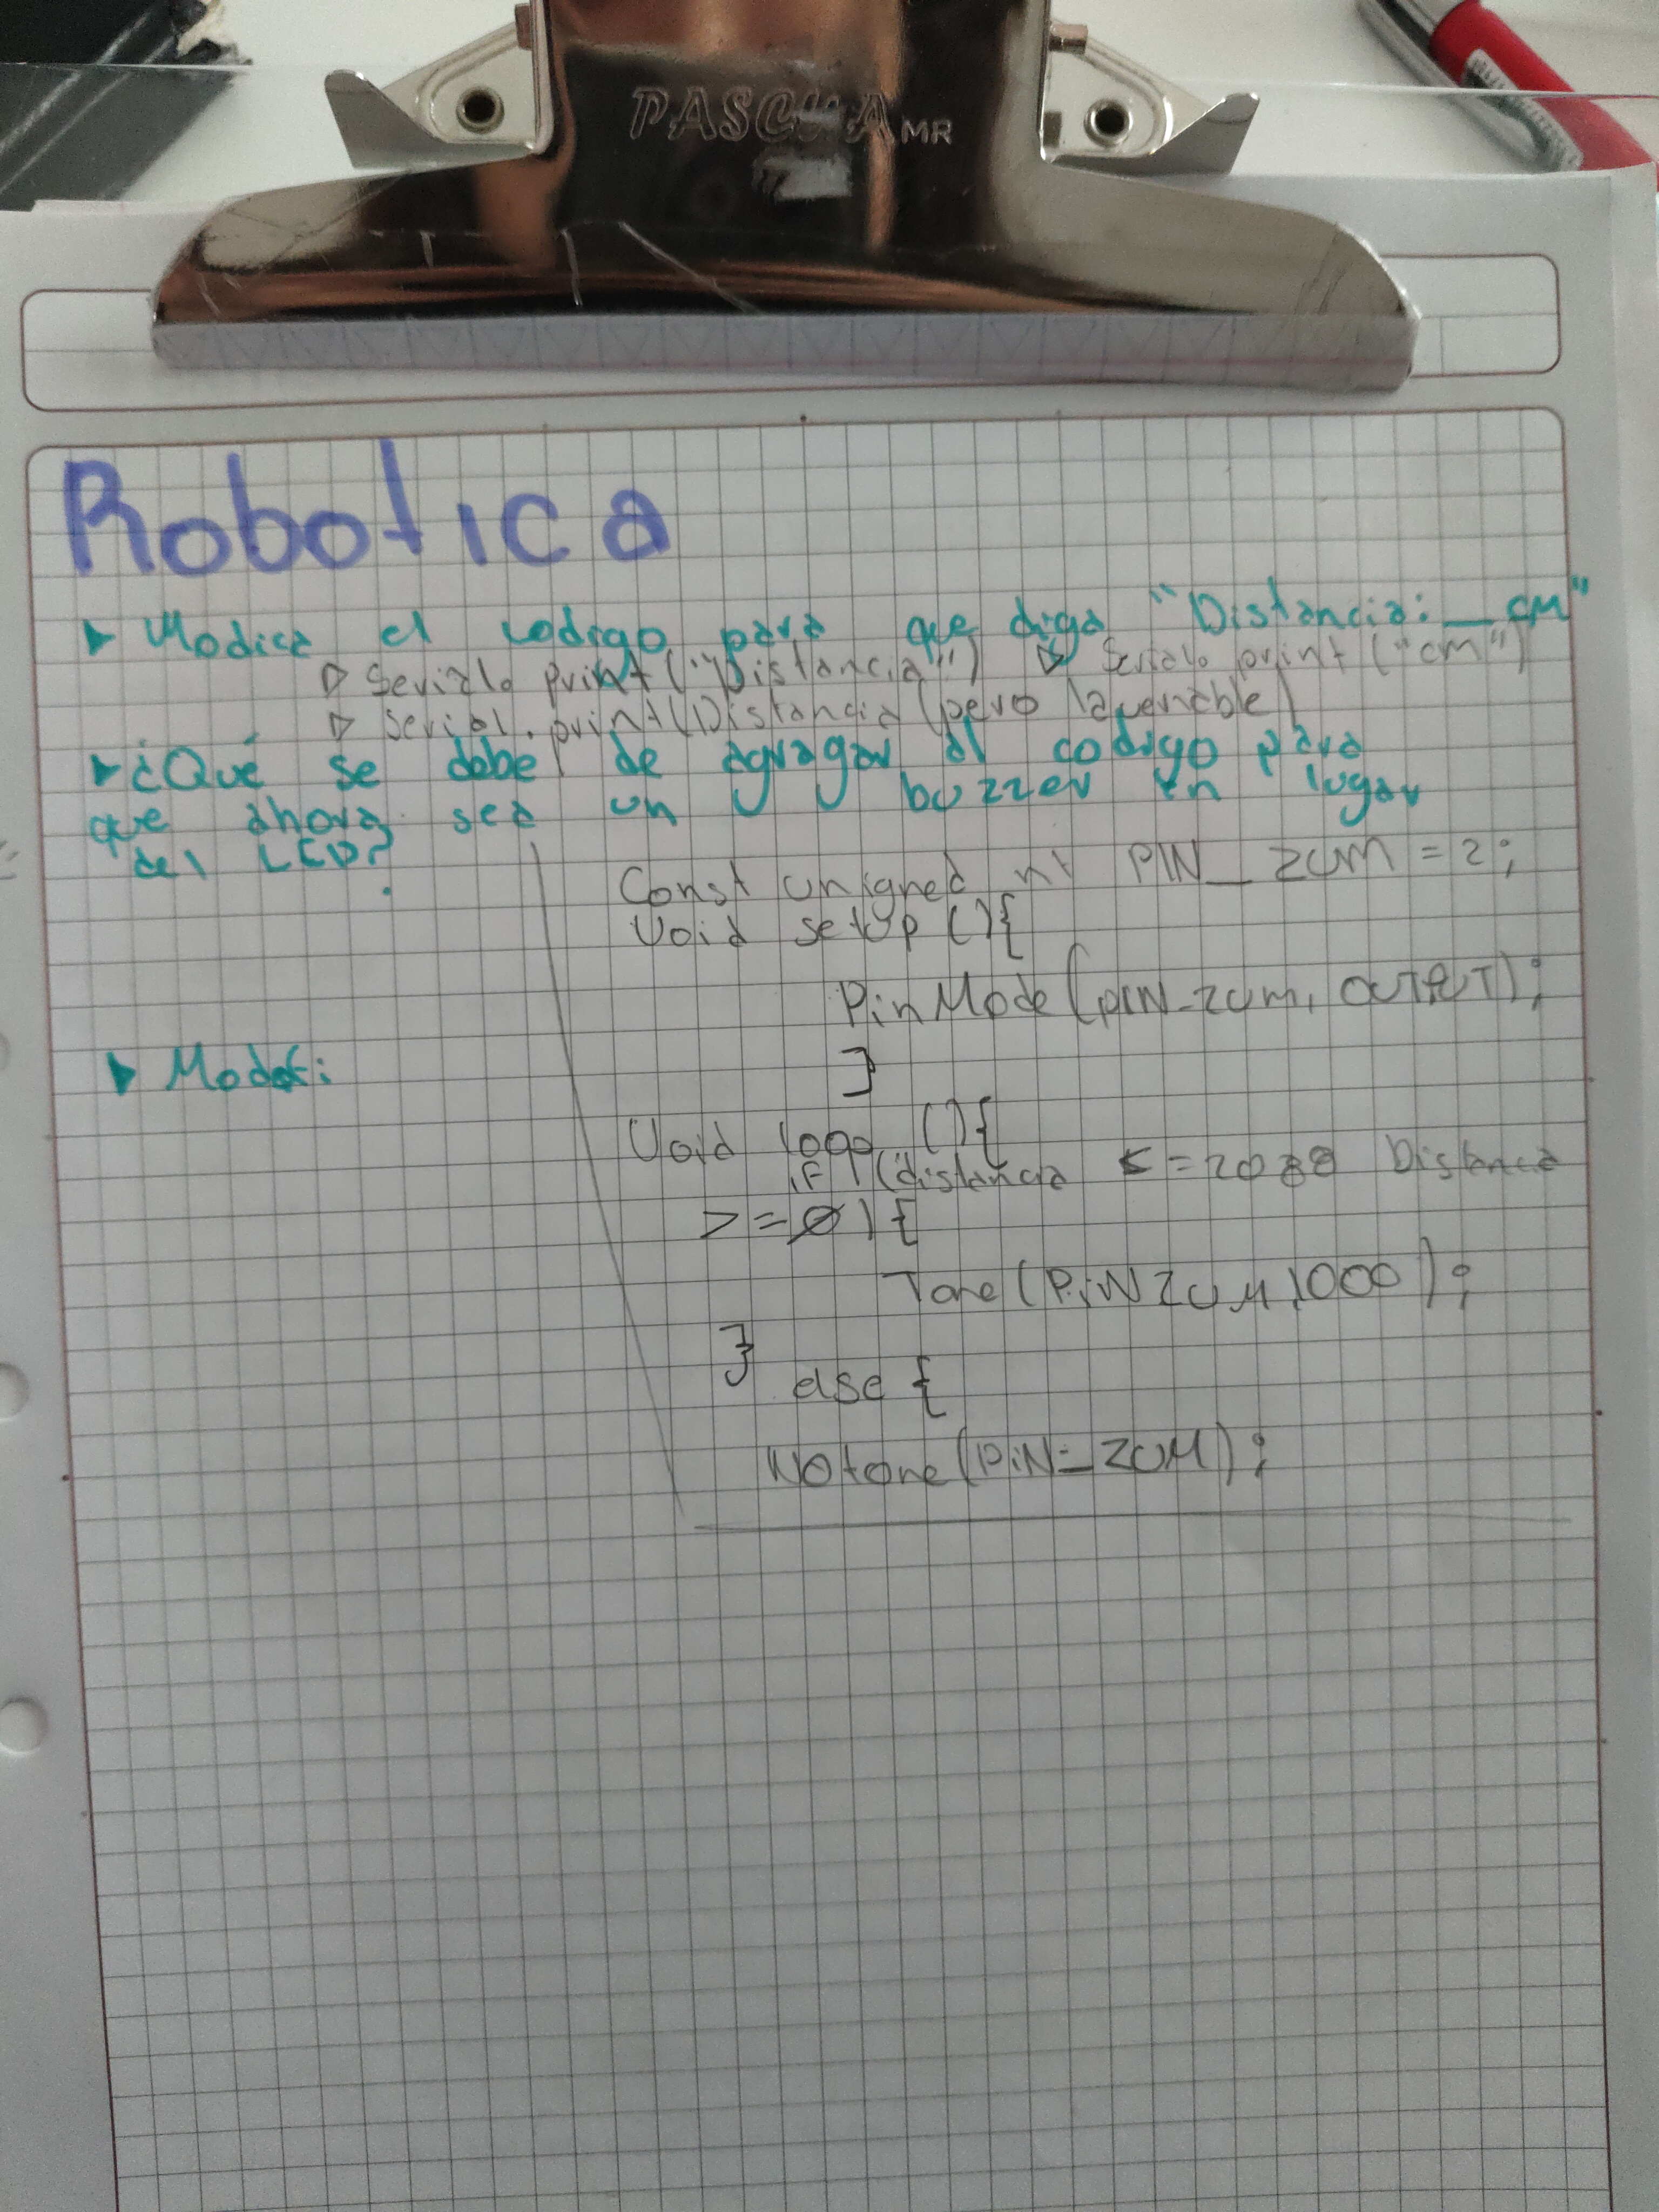 PASCUA MR
Robotica
▶ Modica el codigo para que diga "Distancia: __ cm"
▷ Serial. print ("Distancia") ▷ Serial. print ("cm")
▷ Serial. print (Distancia (pero la
▶ ¿Qué se debe de agragar al codigo para
que ahora sea un buzzer en lugar
del LCD?
Const unsigned int PIN_ZUM = 2;
Void setup () {
PinMode (PIN_ZUM, OUTPUT);
}
▶ Modof:
Void loop () {
if (distancia <= 20 && Distancia
>= 0) {
Tone (PiN ZUM, 1000);
}
else {
Notone (PiN_ZUM);